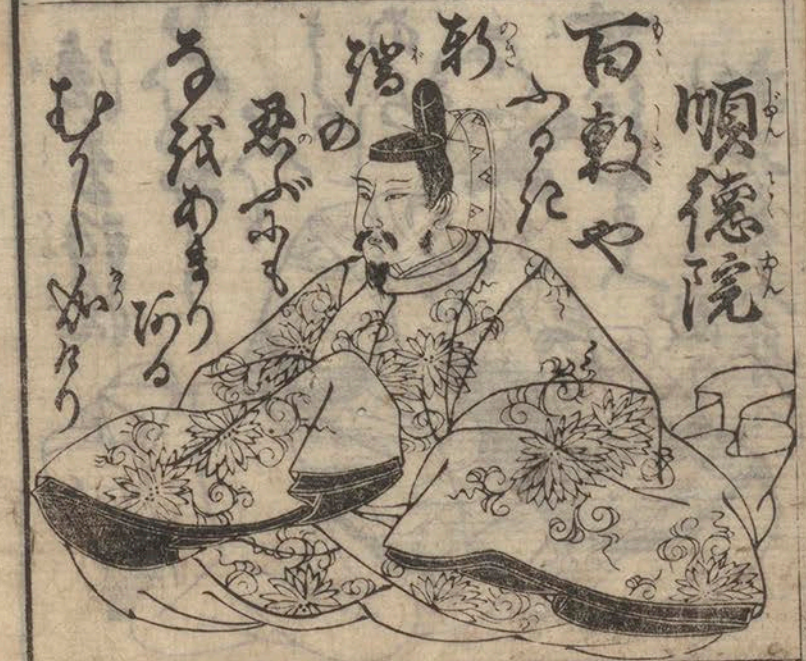 順徳院
百敷や
ふるき
軒
端の
忍ぶにも
なをあまり
ある
むかし成けり